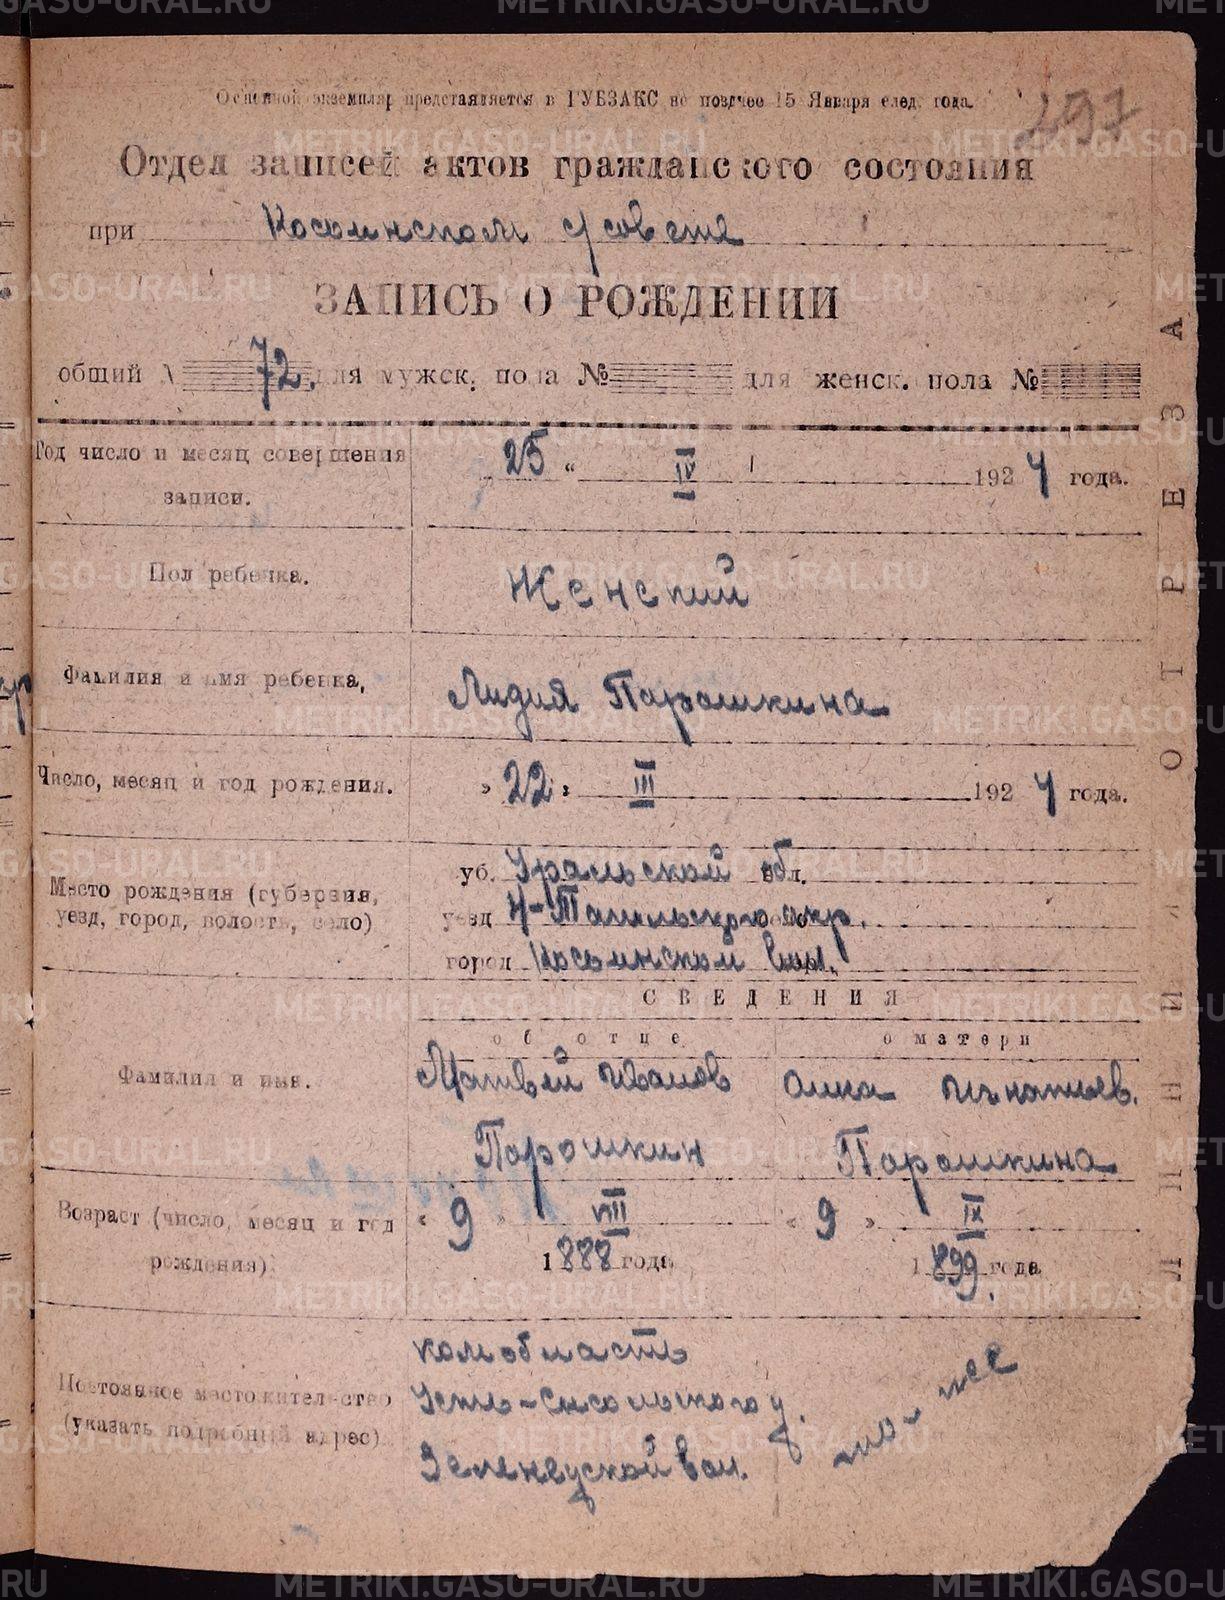 Основной экземпляр представляется в ГУБЗАКС не позднее 15 Января след. года.
Отдел записей актов гражданского состояния
при Косьинском с/совете
ЗАПИСЬ О РОЖДЕНИИ
общий № 72. для мужск. пола № для женск. пола №
Год число и месяц совершения записи. „ 25 “ IV 1924 года.
Пол ребенка. Женский
Фамилия и имя ребенка, Лидия Порошкина
Число, месяц и год рождения. „ 22 „ III 1924 года.
Место рождения (губерния, уезд, город, волость, село)
губ. Уральской обл.
уезд Н-Тагильского окр.
город Косьинской вол.
СВЕДЕНИЯ
об отце о матери
Фамилия и имя. Матвей Иванов Анна Игнатьев.
Порошкин Порошкина
Возраст (число, месяц и год рождения)
« 9 » VIII « 9 » IX
1888 года 1899. года
Постоянное местожительство (указать подробный адрес)
Комобласть
Усть-Сысольского у.
Зеленецкой вол.
то-же
ЛИНИЯ ОТРЕЗА
METRIKI.GASO-URAL.RU